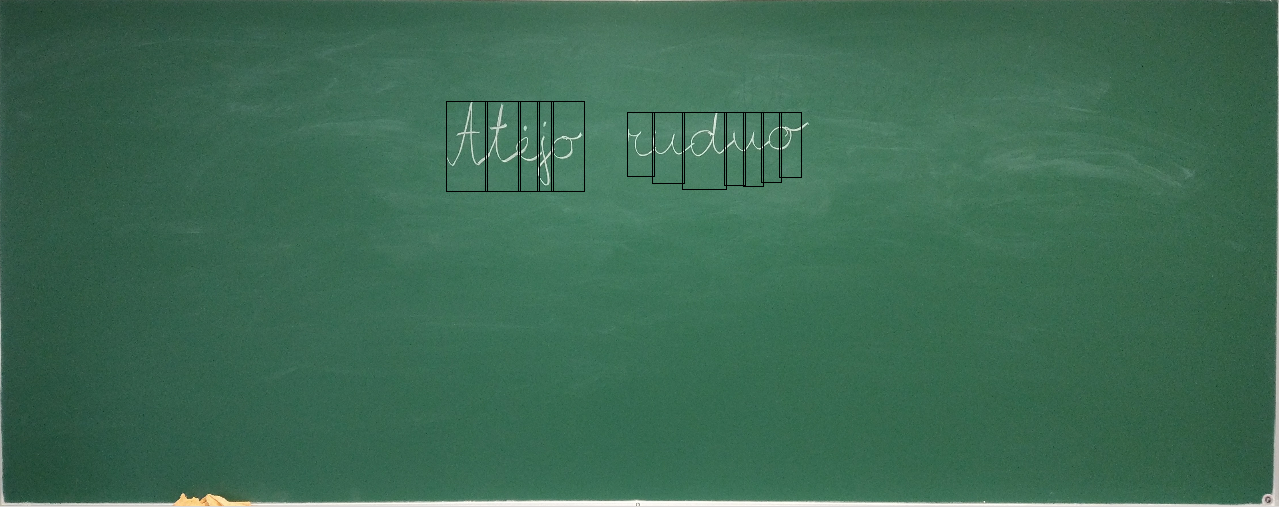 Atėjo ruduo